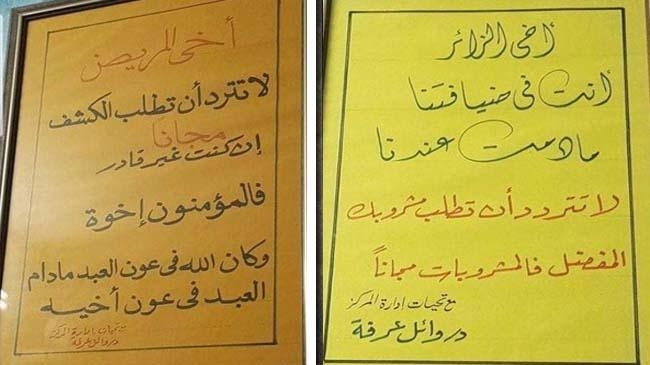 أخى المريض
لا تتردأن تطلب الكشف
مجانا
إن كنت غير قادر
فالمؤمنون إخوة
وكان الله فى عون العبد مادام
العبد فى عون أخيه
مع تحيات إدارة المركز
د روائل عرفة
أخى الزائر
أنت فى ضيافتنا
مادمت عندنا
لا تتردد أن تطلب مشروبك
المفضل فالمشروبات مجاناً
مع تحيات إدارة المركز
د روائل عرفة